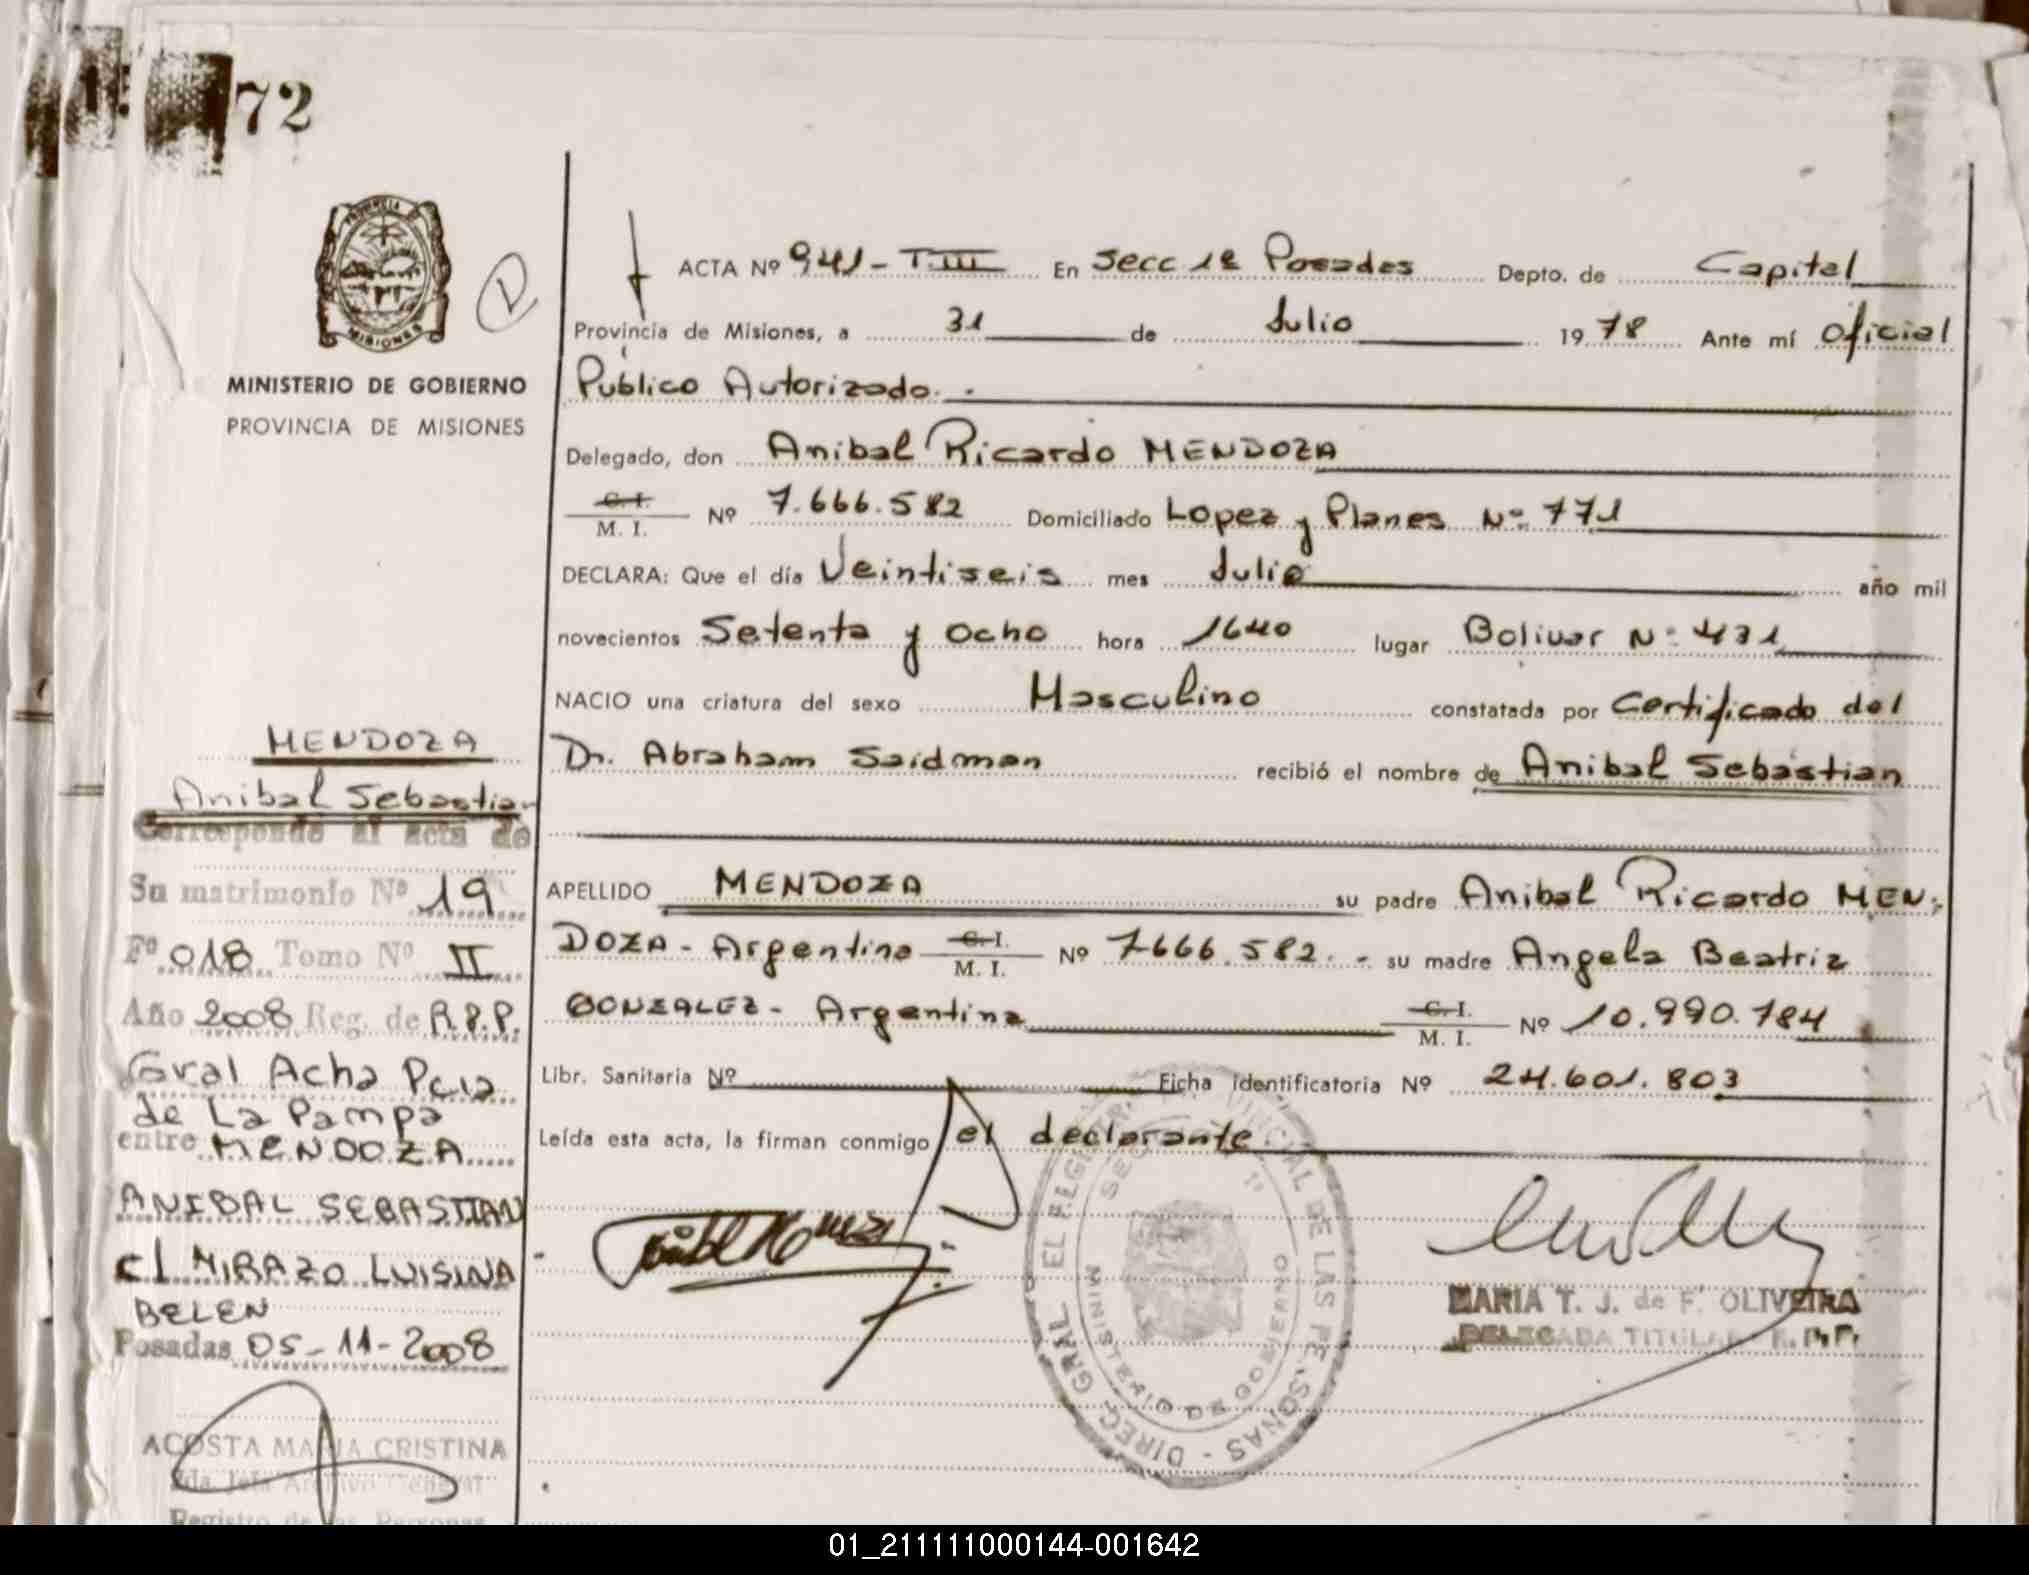 72
MINISTERIO DE GOBIERNO
PROVINCIA DE MISIONES
ACTA Nº 941 - T.III En Secc 1ª Posadas Depto. de Capital
Provincia de Misiones, a 31 de Julio 1978 Ante mí Oficial
Público Autorizado. -
Delegado, don Anibal Ricardo MENDOZA
C. I. / M. I. Nº 7.666.582 Domiciliado Lopez y Planes Nº 771
DECLARA: Que el día Veintiseis mes Julio año mil
novecientos Setenta y ocho hora 1640 lugar Bolivar Nº 431
NACIO una criatura del sexo Masculino constatada por Certificado del
Dr. Abraham Saidman recibió el nombre de Anibal Sebastian
APELLIDO MENDOZA su padre Anibal Ricardo MEN-
DOZA - Argentino C. I. / M. I. Nº 7.666.582. - su madre Angela Beatriz
GONZALEZ - Argentina C. I. / M. I. Nº 10.990.784
Libr. Sanitaria Nº Ficha identificatoria Nº 24.601.803
Leída esta acta, la firman conmigo el declarante.
MARIA T. J. de F. OLIVEIRA
DELEGADA TITULAR R. P. P.
MENDOZA
Anibal Sebastian
Corresponde al acta de
Su matrimonio Nº 19
Fº 018 Tomo Nº II
Año 2008 Reg. de R.P.P.
Gral Acha Pcia
de La Pampa
entre MENDOZA
ANIBAL SEBASTIAN
c/ MIRAZO LUISINA
BELEN
Posadas 05-11-2008
ACOSTA MARIA CRISTINA
Registro de las Personas
01_211111000144-001642